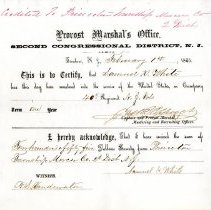 Credited to Princeton Township Mercer Co.
2 Dist.
Provost Marshal's Office.
SECOND CONGRESSIONAL DISTRICT, N. J.
Trenton, N. J. February 1st 1865
This is to Certify, that Samuel H. White
has been mustered into the service of the United States in Company
40th Regiment N. J. Vols
Term One Year
Captain and Provost Marshal,
Mustering and Recruiting Officer.
I hereby acknowledge, That I have received the sum of
dollars Bounty from Princeton
Township Mercer Co. 2d Dist. N. J.
Samuel H. White